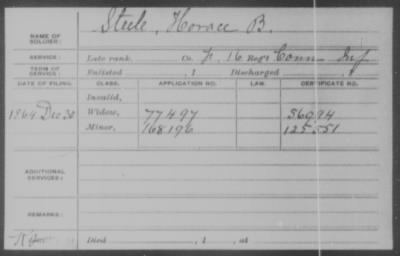 NAME OF SOLDIER: Steele, Horace B.
SERVICE: Late rank, Co. 16 Reg't Conn Inf
TERM OF SERVICE: Enlisted , 1 Discharged , 1
DATE OF FILING. CLASS. APPLICATION NO. LAW. CERTIFICATE NO.
Invalid,
1864 Dec 30 Widow, 77497 56994
Minor, 168196 125551
ADDITIONAL SERVICES:
REMARKS:
Died , 1 , at